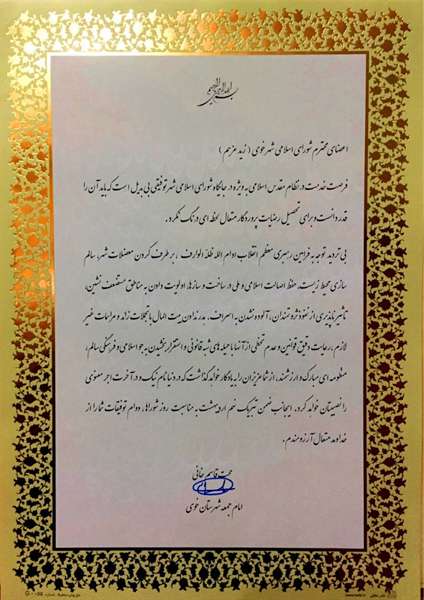 بسم الله الرحمن الرحیم
اعضای محترم شورای اسلامی شهر خوی ( زید عزهم )
فرصت خدمت در نظام مقدس اسلامی به ویژه در جایگاه شورای اسلامی شهر توفیقی بی بدیل است که باید آن را
قدر دانست و برای تحصیل رضایت پروردگار متعال لحظه ای درنگ نکرد.
بی تردید توجه به فرامین رهبری معظم انقلاب ادام الله ظله الوارف ، بر طرف کردن معضلات شهر، سالم
سازی محیط زیست، حفظ اصالت اسلامی و ملی در ساخت و سازها، اولویت دادن به مناطق مستضعف نشین،
تاثیر ناپذیری از نفوذ ثروتمندان، آلوده نشدن به اسراف، هدر ندادن بیت المال با تجملات زائد و مراسمات غیر
لازم، رعایت دقیق قوانین و عدم تخطی از آنها با حیله های شبه قانونی و استقرار بخشیدن به جو اسلامی و فرهنگی سالم،
منظومه ای مبارک و ارزشمند، از شما عزیزان را به یادگار خواهد گذاشت که در دنیا نام نیک و در آخرت اجر معنوی
را نصیبتان خواهد کرد. اینجانب ضمن تبریک نهم اردیبهشت به مناسبت روز شوراها، دوام توفیقات شما را از
خداوند متعال آرزومندم.
حجت قاسم خانی
امام جمعه شهرستان خوی